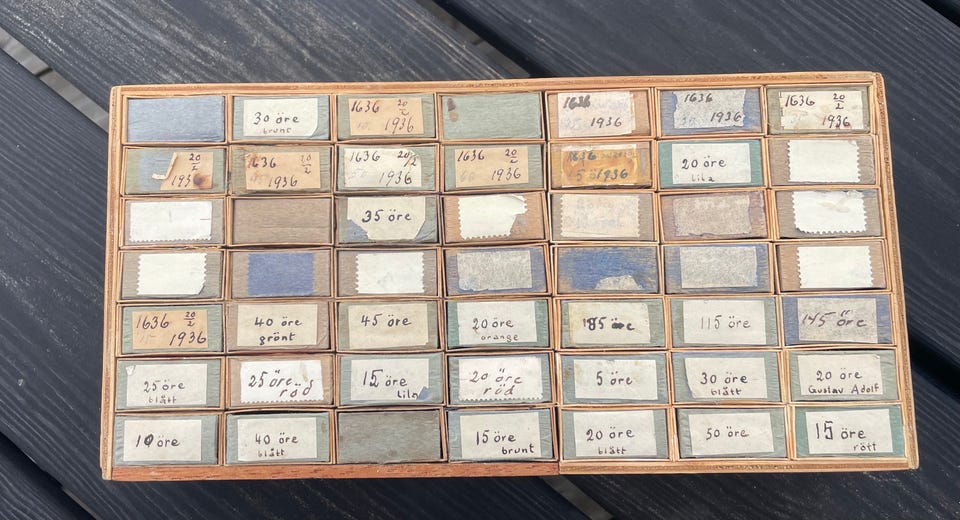 30 öre
brunt
1636 20/2
1936
1636
1936
1636
1936
1636 20/2
1936
20/2
193
1636 20
1936
1636 20/2
1936
1636 20/2
1936
1636
1936
20 öre
lila
35 öre
1636 20/2
1936
40 öre
grönt
45 öre
20 öre
orange
85 öre
115 öre
145 öre
25 öre
blått
25 öre
röd
15 öre
lila
20 öre
röd
5 öre
30 öre
blått
20 öre
Gustav Adolf
10 öre
40 öre
blått
15 öre
brunt
20 öre
blått
50 öre
15 öre
rött